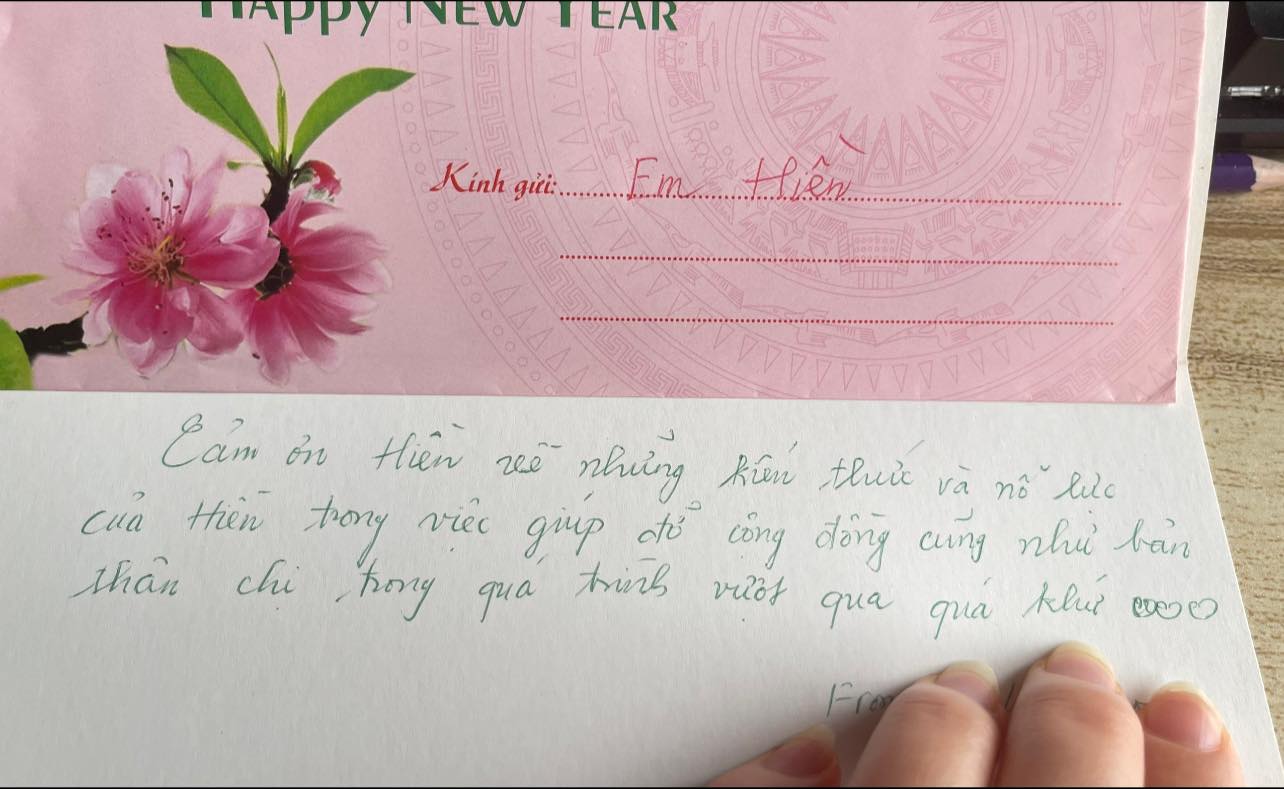 HAPPY NEW YEAR
Kính gửi: Em Hiền
Cảm ơn Hiền về những kiến thức và nỗ lực
của Hiền trong việc giúp đỡ cộng đồng cũng như bản
thân chị trong quá trình vượt qua quá khứ ♡♡♡